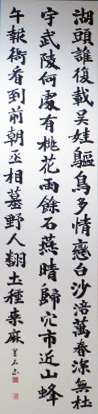 湖頭誰復載吳娃鷗鳥多情戀白沙春深無杜
宇武陵何處有桃花雨餘石燕晴歸穴市近山蜂
午報衙看到前朝丞相墓野人翻土種桑麻